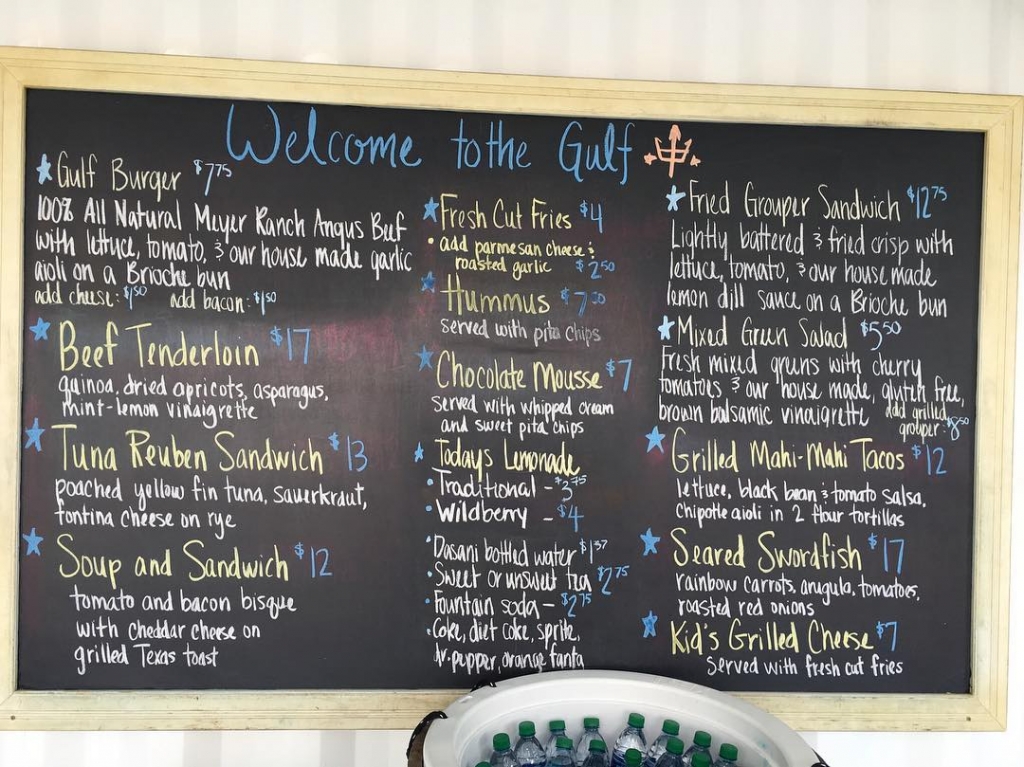 Welcome to the Gulf
Gulf Burger $7.75
100% All Natural Meyer Ranch Angus Beef
with lettuce, tomato, & our house made garlic
aioli on a Brioche bun
add cheese: $1.50 add bacon: $1.50
Beef Tenderloin $17
quinoa, dried apricots, asparagus,
mint-lemon vinaigrette
Tuna Reuben Sandwich $13
poached yellow fin tuna, sauerkraut,
fontina cheese on rye
Soup and Sandwich $12
tomato and bacon bisque
with cheddar cheese on
grilled Texas toast
Fresh Cut Fries $4
• add parmesan cheese &
roasted garlic $2.50
Hummus $7.50
served with pita chips
Chocolate Mousse $7
served with whipped cream
and sweet pita chips
Todays Lemonade
• Traditional - $3.75
• Wildberry - $4
• Dasani bottled water $1.37
• Sweet or unsweet tea $2.75
• Fountain soda - $2.75
• Coke, diet coke, sprite,
dr. pepper, orange fanta
Fried Grouper Sandwich $12.75
Lightly battered & fried crisp with
lettuce, tomato, & our house made
lemon dill sauce on a Brioche bun
Mixed Green Salad $5.50
Fresh mixed greens with cherry
tomatoes & our house made, gluten free,
brown balsamic vinaigrette add grilled
grouper: $8.50
Grilled Mahi-Mahi Tacos $12
lettuce, black bean & tomato salsa,
chipotle aioli in 2 flour tortillas
Seared Swordfish $17
rainbow carrots, arugula, tomatoes,
roasted red onions
Kid's Grilled Cheese $7
Served with fresh cut fries